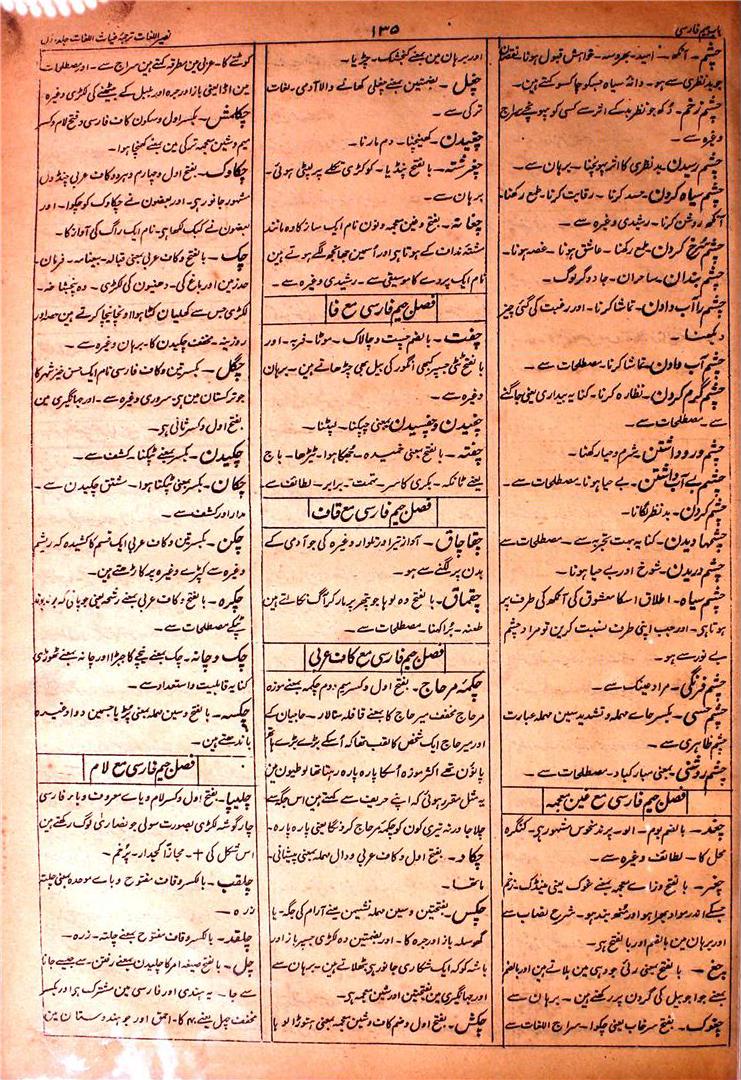 باب جیم فارسی
۱۳۵
نصیر اللغات ترجمۂ غیاث اللغات جلد اول
چشم ۔ آنکھ ۔ امید ۔ بھروسہ ۔ خواہش قبول ہونا
جو بد نظری سے ہو ۔ دانۂ سیاہ جسکو چاکسو کہتے ہین ۔
چشم زخم ۔ دکھ جو نظر بد کے اثر سے کسی کو پہونچے سراج
وغیرہ سے ۔
چشم رسیدن ۔ بد نظری کا اثر پہونچنا ۔ برہان سے ۔
چشم سیاہ کردن ۔ حسد کرنا ۔ رقابت کرنا ۔ طمع رکھنا ۔
آنکھ روشن کرنا ۔ رشیدی وغیرہ سے ۔
چشم سرخ کردن ۔ طمع رکھنا ۔ عاشق ہونا ۔ غصہ ہونا ۔
چشم بندان ۔ ساحران ۔ جادوگر لوگ ۔
چشم را آب دادن ۔ تماشا کرنا ۔ اور رغبت کی گئی چیز
دیکھنا ۔
چشم آب دادن ۔ تماشا کرنا ۔ مصطلحات سے ۔
چشم گرم کردن ۔ نظارہ کرنا ۔ کنایہ بیداری یعنی جاگنے
سے ۔ مصطلحات سے ۔
چشم ور و داشتن ۔ شرم و حیا رکھنا ۔
چشم بے آب داشتن ۔ بے حیا ہونا ۔ مصطلحات سے ۔
چشم کردن ۔ بد نظر لگانا ۔
چشمہا دیدن ۔ کنایہ بہت تجربہ سے ۔ مصطلحات سے
چشم دریدن ۔ شوخ اور بے حیا ہونا ۔
چشم سیاہ ۔ اطلاق اسکا معشوق کی آنکھ کی طرف پر
ہوتا ہی ۔ اور جب اپنی طرف نسبت کرین تو مراد چشم
بے نور سے ہو ۔
چشم فرنگی ۔ مراد عینک سے ۔
چشم حسی ۔ بکسر حاے مہملہ و تشدید سین مہملہ عبارت
چشم ظاہری سے ۔
چشم روشنی ۔ بمعنی مبارکباد ۔ مصطلحات سے ۔
فصل جیم فارسی مع غین معجمہ
چغد ۔ بالضم بوم ۔ الو ۔ پرند نحوس مشہور ہی ۔ کنگرہ
محل کا ۔ لطائف وغیرہ سے ۔
چغز ۔ بالفتح وزاے معجمہ بمعنے غوک یعنی مینڈک ۔ زخم
جسکے اندر مواد بھرا ہو اور منھ بند ہو ۔ شرح نصاب سے
اور برہان مین بالضم اور بالفتح ہو ۔
چغ ۔ بالفتح بمعنی رئی جو دہی مین ہلاتے ہین اور بالضم
بمعنے جوا جو بیل کی گردن پر رکھتے ہین ۔ برہان سے
چغوک ۔ بفتح سرخاب یعنی چکوا ۔ سراج اللغات سے
اور برہان مین بمعنے کنجشک ۔ چڑیا ۔
چغل ۔ بضمتین بمعنے چغلی کھانے والا آدمی ۔ لغات
ترکی سے ۔
چغیدن ۔ کھینچنا ۔ دم مارنا ۔
چغرشتہ ۔ بالفتح پنڈیا ۔ کوکڑی تکلے پر لپٹی ہوئی ۔
برہان سے ۔
چغانہ ۔ بفتح وغین معجمہ ونون نام ایک ساز کا وہ مانند
مشتہ نداف کے ہوتا ہی اور اسمین جھانجھ لگے ہوتے ہین
نام ایک پردے کا موسیقی سے ۔ رشیدی وغیرہ سے ۔
فصل جیم فارسی مع فا
چفت ۔ بالضم چست و چالاک ۔ موٹا ۔ فربہ ۔ اور
بالفتح ٹٹی جسپر کبھی انگور کی بیل بھی چڑھاتے ہین ۔ برہان
وغیرہ سے ۔
چفیدن و چفسیدن بمعنی چپکنا ۔ لپٹنا ۔
چفتہ ۔ بالفتح بمعنی خمیدہ ۔ جھکا ہوا ۔ ٹیڑھا ۔ باج
یعنے ٹانکہ ۔ بکری کا سر ۔ تہمت ۔ برابر ۔ لطائف سے
فصل جیم فارسی مع قاف
چقاچاق ۔ آواز تیر اور تلوار وغیرہ کی جو آدمی کے
بدن پر لگنے سے ہو ۔
چقماق ۔ بالفتح وہ لوہا جو پتھر پر مار کر آگ نکالتے ہین
طعنہ ۔ برا کہنا ۔ مصطلحات سے ۔
فصل جیم فارسی مع کاف عربی
چکمۂ مرحاج ۔ بفتح اول وکسر میم دوم چکمہ بمعنے موزہ
مرحاج مخفف میر حاج کا بمعنے قافلہ سالار ۔ حاجیان کے
اور میر حاج ایک شخص کا لقب تھا کہ اسکے بڑے بڑے ہاتھ
پانون تھے اکثر موزہ اسکا پارہ پارہ رہتا تھا لوطیون مین
یہ مثل مقرر ہوئی کہ اپنے حریف سے کہتے ہین اس جگہ سے
چلا جا ورنہ تیری کون کو چکمۂ مرحاج کر دونگا یعنی پارہ پارہ ۔
چکاد ۔ بفتح اول و کاف عربی و دال مہملہ بمعنی پیشانی ۔
ماتھا ۔
چکس ۔ بفتحتین وسین مہملہ نشیمن بمعنے آرام کی جگہ ۔ یا
گھونسلہ باز اور جرہ کا ۔ اور بضمتین وہ لکڑی جسپر باز اور
باشہ کو کہ ایک شکاری جانور ہی بٹھلاتے ہین ۔ برہان سے
اور جہانگیری مین بفتحتین اور شین معجمہ ہی ۔
چکش ۔ بفتح اول وضم کاف وشین معجمہ بمعنی ہتوڑا لوہا
کوٹنے کا ۔ عربی مین مطرقہ کہتے ہین سراج سے ۔ اور مصطلحات
مین اڈا یعنی باز اور جرہ اور بلبل کے بیٹھنے کی لکڑی وغیرہ
چکالمش ۔ بکسر اول وسکون کاف فارسی وفتح لام وکسر
میم وشین معجمہ ترکی مین بمعنے کھنچا ہوا ۔
چکاوک ۔ بفتح اول وچہارم وہر دو کاف عربی چنڈول
مشہور جانور ہی ۔ اور بعضون نے چکاوک کو چکوا ۔ اور
بعضون نے کبک لکھا ہی ۔ نام ایک راگ کی آواز کا ۔
چک ۔ بالفتح وکاف عربی بمعنی قبالہ ۔ بیعنامہ ۔ فرمان ۔
حد زمین اور باغ کی ۔ دھنیون کی لکڑی ۔ وہ پنجشاخہ ۔
لکڑی جس سے کھلیان
روزینہ ۔ مخفف چکیدن کا ۔ برہان وغیرہ سے ۔
چگل ۔ بکسرتین وکاف فارسی نام ایک حسن خیز شہر کا
جو ترکستان مین ہی ۔ سروری وغیرہ سے ۔ اور جہانگیری مین
بفتح اول وکسر ثانی ہی ۔
چکیدن ۔ بکسر بمعنے ٹپکنا ۔ کشف سے ۔
چکان ۔ بکسر بمعنی ٹپکتا ہوا ۔ مشتق چکیدن سے ۔
مدار اور کشف سے ۔
چکن ۔ بکسرتین وکاف عربی ایک قسم کا کشیدہ کہ ریشم
وغیرہ سے کپڑے وغیرہ پر کاڑھتے ہین ۔
چکرہ ۔ بالفتح وکاف عربی بمعنے رشحہ یعنی جو پانی کہ بوند بوند
ٹپکے مصطلحات سے ۔
چک و چانہ ۔ چک بمعنے نیچے کا جبڑا اور چانہ بمعنے ٹھوڑی
کنایہ قابلیت و استعداد سے ۔
چکسہ ۔ بالفتح وسین مہملہ بمعنی پڑیا جسمین دوا وغیرہ
باندھتے ہین ۔
فصل جیم فارسی مع لام
چلیپا ۔ بفتح اول وکسر لام و یاے معروف و باء فارسی
چار گوشہ لکڑی بصورت سولی جو نصاریٰ لوگ رکھتے ہین
اس شکل کی + ۔ مجازاً کجدار ۔ پر خم ۔
چلقب ۔ بالکسر وقاف مفتوح و باے موحدہ بمعنی چلتہ
زرہ ۔
چلقد ۔ بالکسر وقاف مفتوح بمعنے چلتہ ۔ زرہ ۔
چل ۔ بالفتح صیغہ امر کا چلیدن بمعنے رفتن ۔ سے جیسے جانا
سے جا ۔ یہ ہندی اور فارسی مین مشترک ہی اور بکسر
مخفف چہل بمعنے ۴۰ کا ۔ احمق اور جو ہندوستان مین